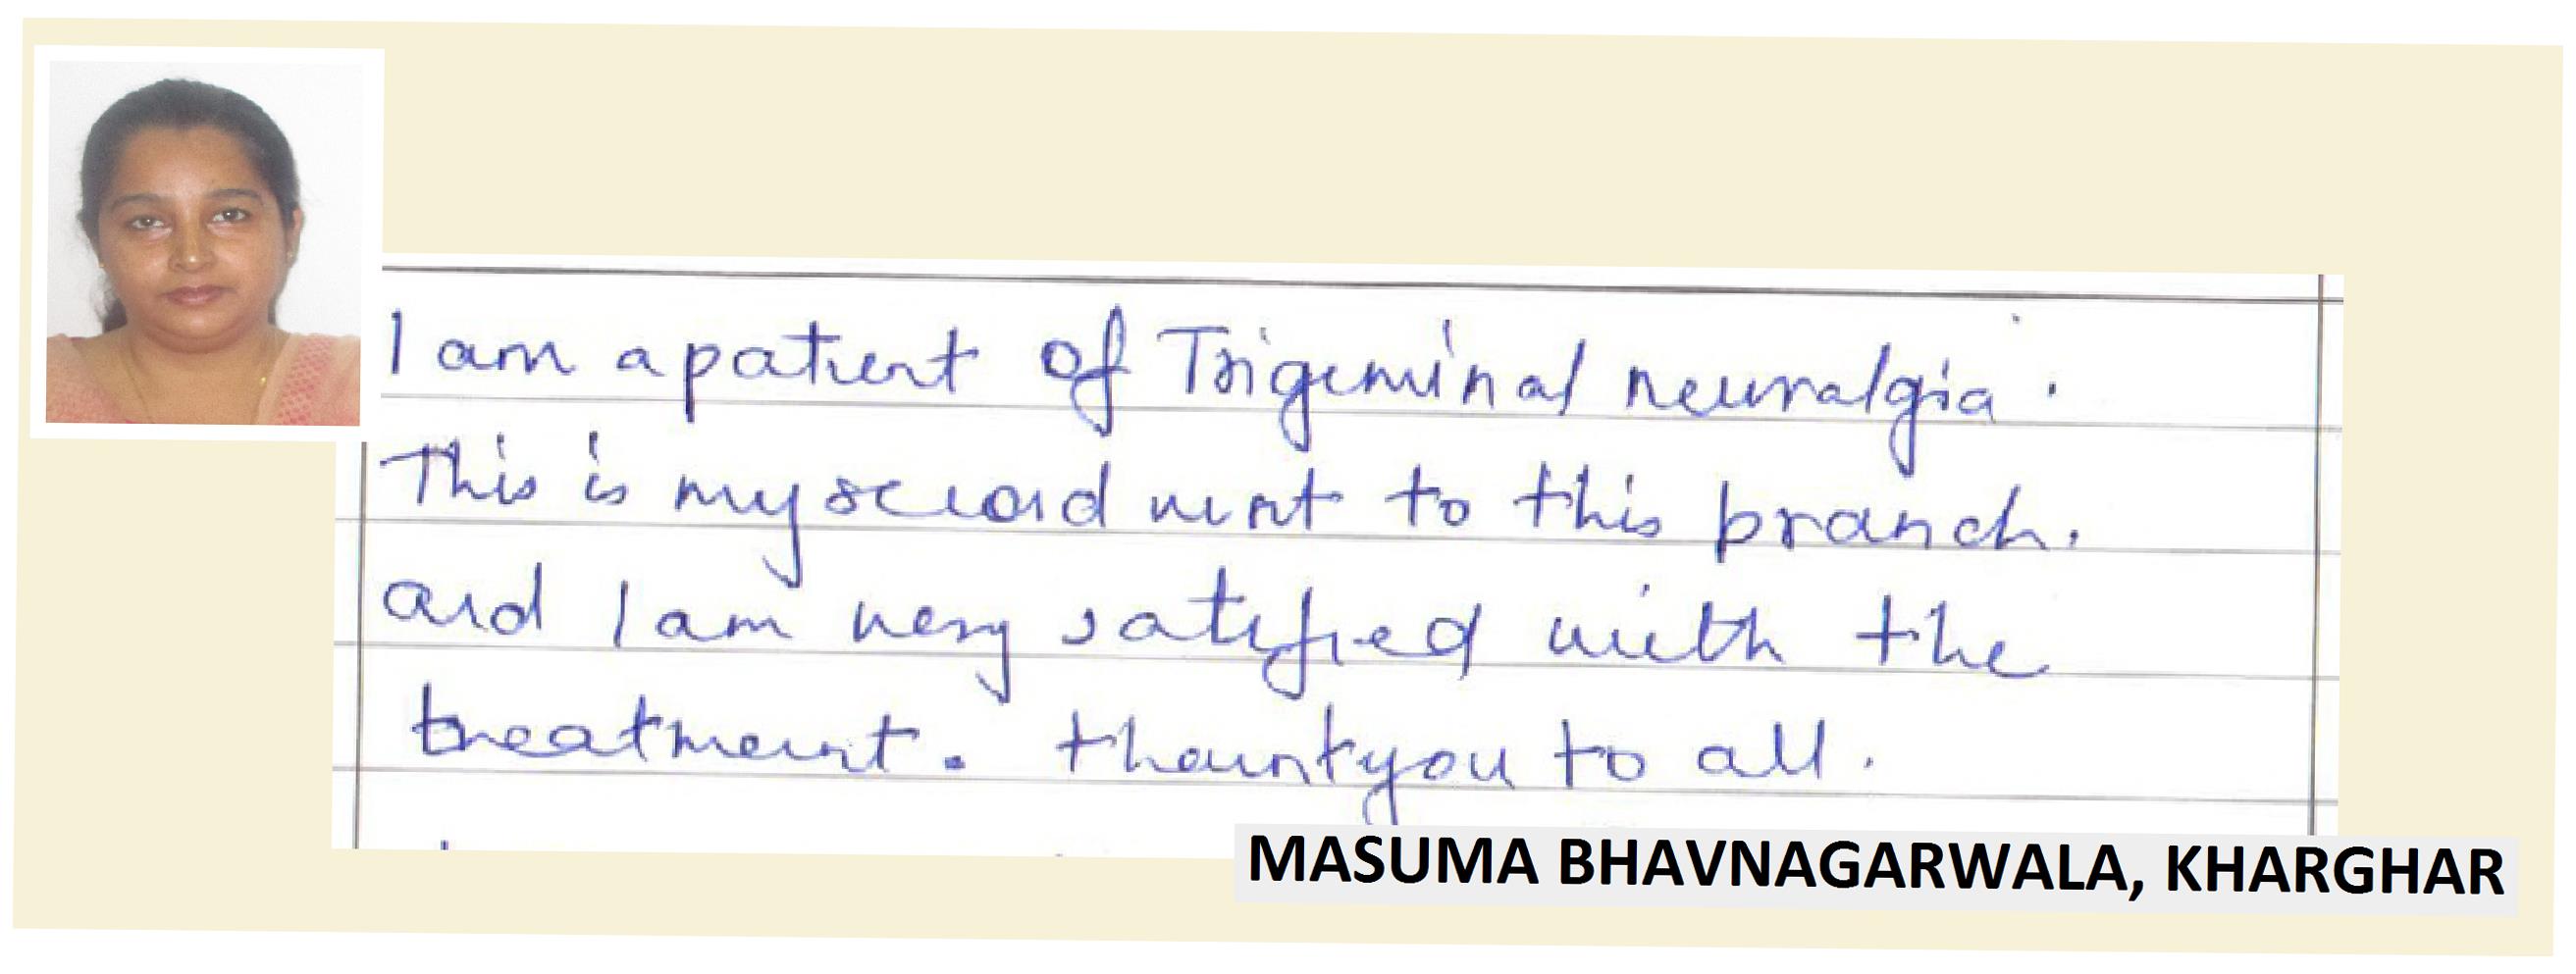 I am a patient of Trigeminal neuralgia.
This is my second visit to this branch.
and I am very satified with the
treatment. thankyou to all.
MASUMA BHAVNAGARWALA, KHARGHAR